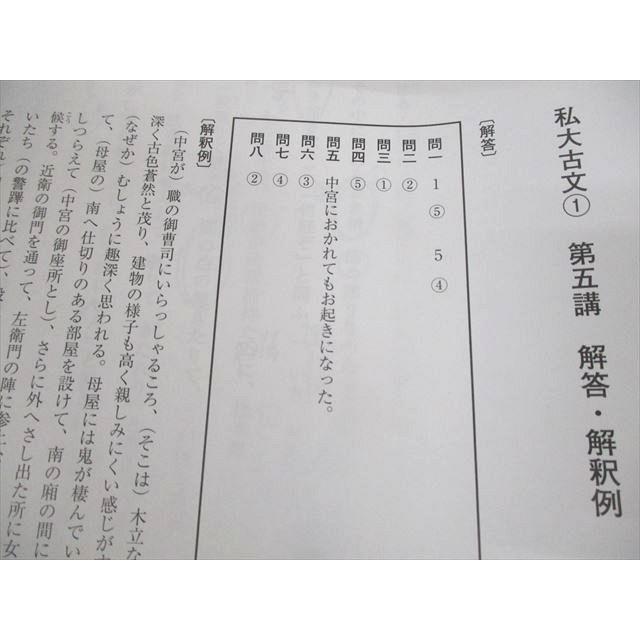 私大古文① 第五講 解答・解釈例
〔解答〕
問一 1 ⑤ 5 ④
問二 ②
問三 ①
問四 ⑤
問五 中宮におかれてもお起きになった。
問六 ③
問七 ④
問八 ②
〔解釈例〕
(中宮が)職の御曹司にいらっしゃるころ、(そこは)木立な
深く古色蒼然と茂り、建物の様子も高く親しみにくい感じが
(なぜか)むしょうに趣深く思われる。母屋には鬼が棲んでい
て、(母屋の)南へ仕切りのある部屋を設けて、南の廂の間に
しつらえて(中宮の御座所とし)、さらに外へさし出た所に女
候する。近衛の御門を通って、左衛門の陣に参上
いたち(の警蹕に比べて)、
それぞれ